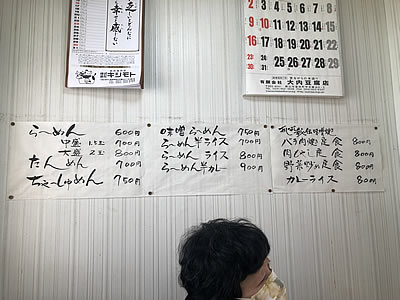 キシモト
2 3 4 5 6 7 8
9 10 11 12 13 14 15
16 17 18 19 20 21 22
23 24 25 26 27 28 29
有限会社 大内豆腐店
らーめん 600円
中盛 1.5玉 700円
大盛 2玉 800円
たんめん 700円
ちゃーしゅめん 750円
味噌らーめん 750円
らーめん半ライス 700円
らーめん ライス 800円
らーめん半カレー 900円
バラ肉焼定食 800円
肉もやし定食 800円
野菜炒め定食 800円
カレーライス 800円